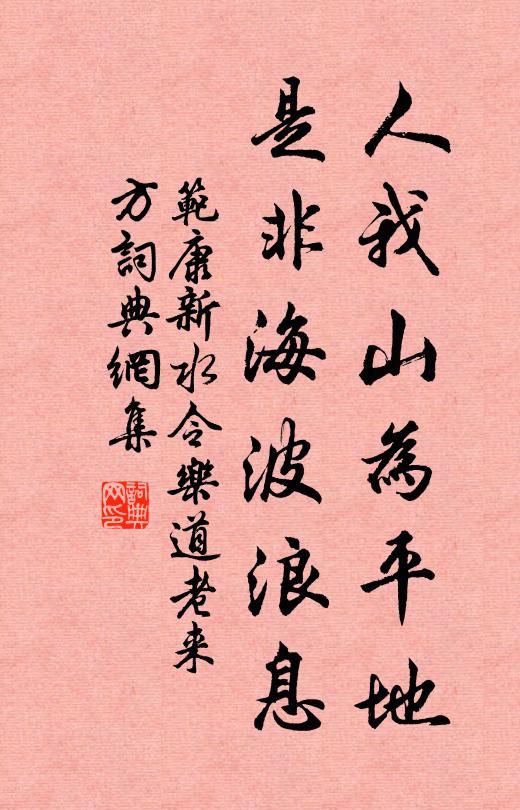 人我山為平地
是非海波浪息
範康新水令樂道老来
方詞典網集
詞典網印